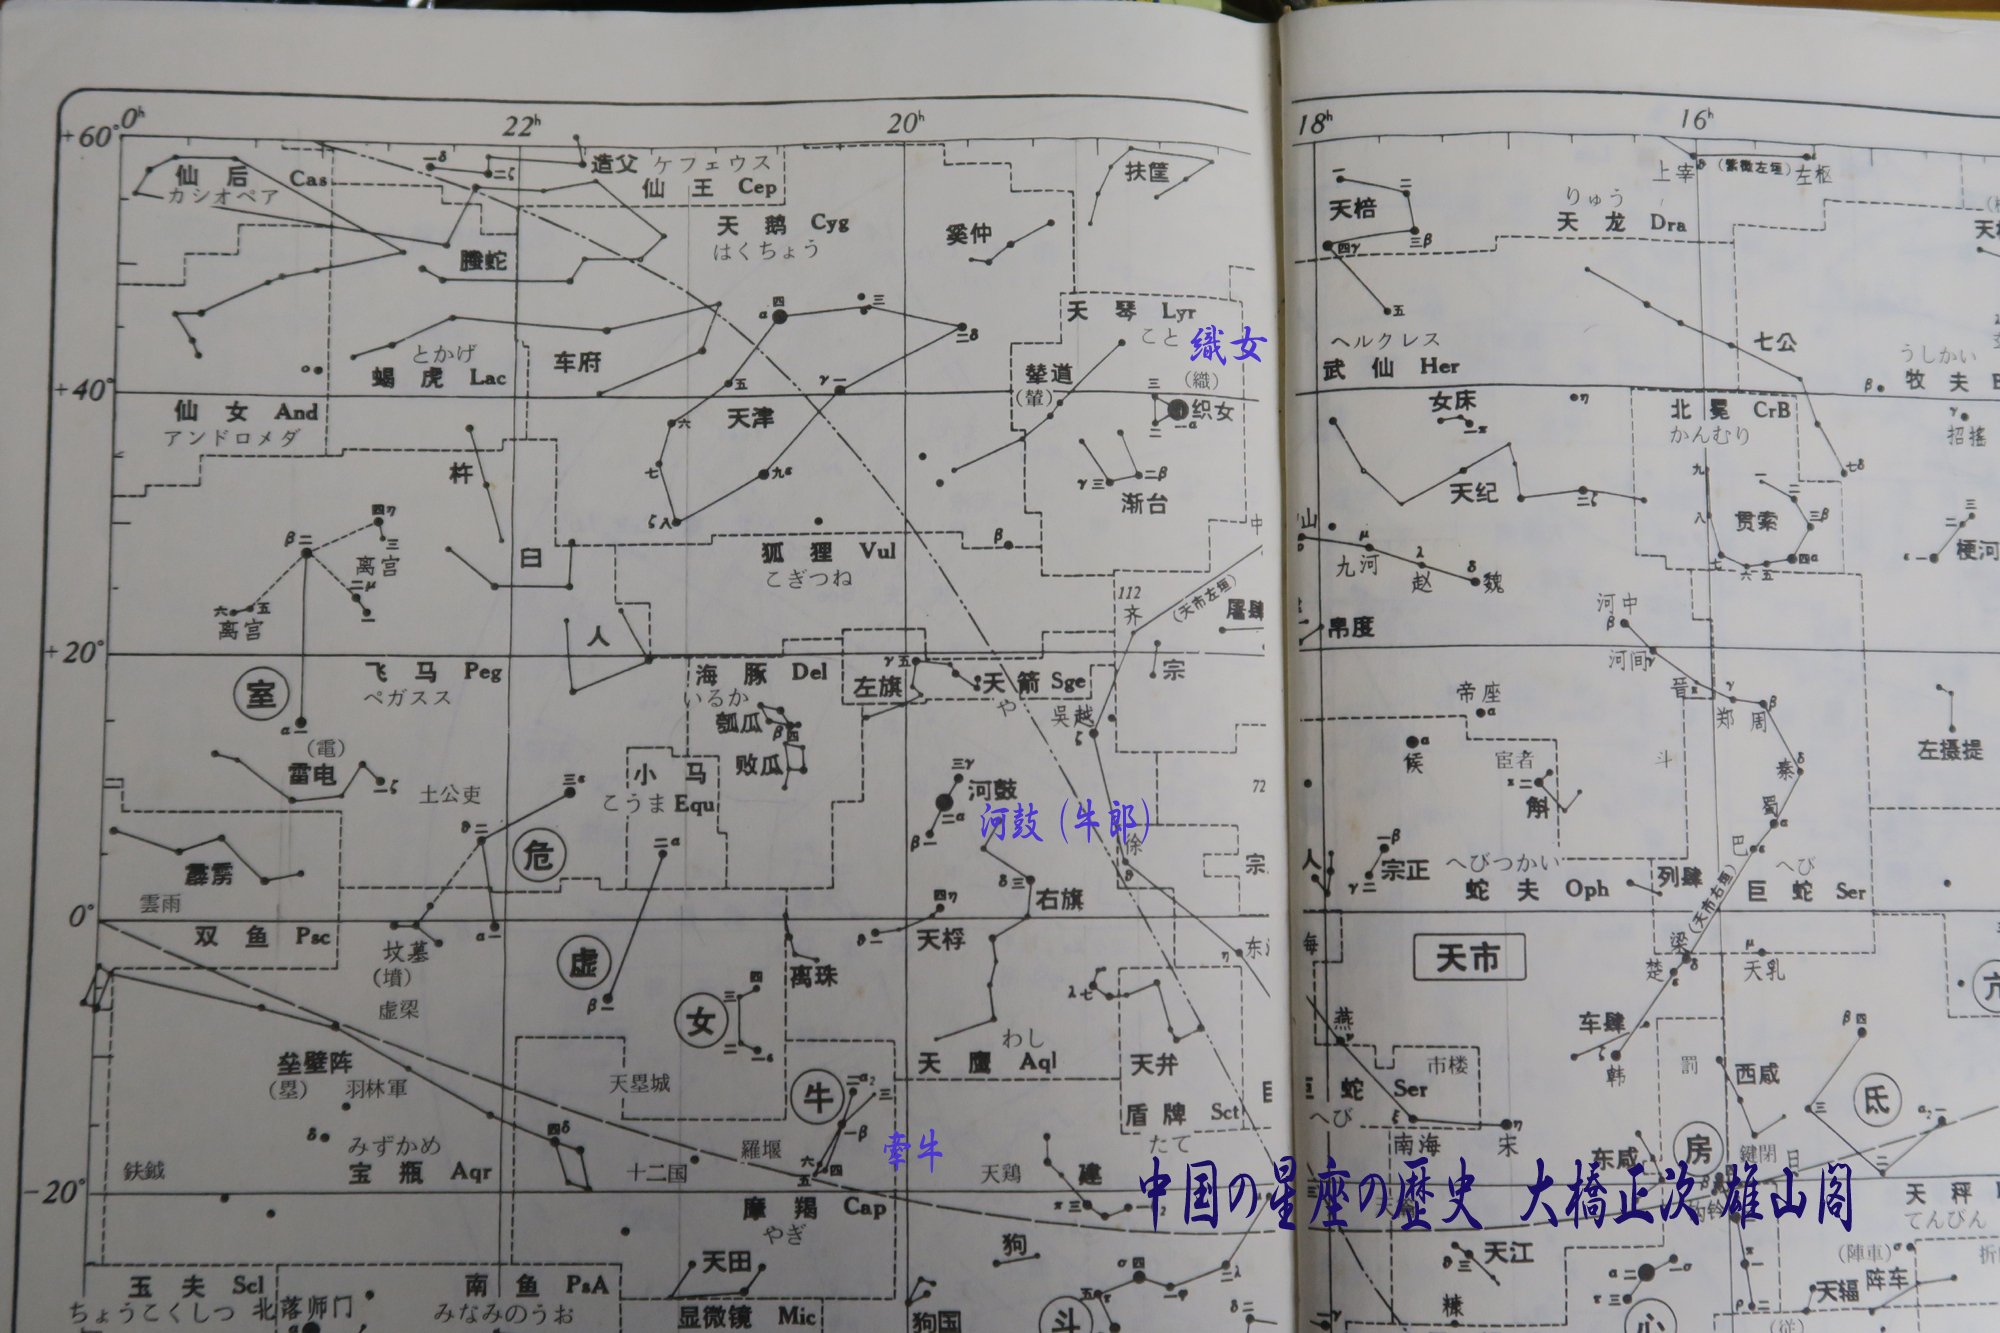 0h 22h 20h 18h 16h
+60°
仙后 Cas
カシオペア
造父 ケフェウス
仙王 Cep
天鹅 Cyg
はくちょう
螣蛇
奚仲
扶筐
天棓
りゅう
天龙 Dra
上宰 (紫微左垣) 左枢
天琴 Lyr
こと 織女
とかげ
蝎虎 Lac
车府
辇道
(輦)
(織)
织女
ヘルクレス
武仙 Her
七公
うしかい
牧夫
+40°
仙女 And
アンドロメダ
天津
女床
北冕 CrB
かんむり
招摇
杵
渐台
天纪
贯索
梗河
臼
狐狸 Vul
こぎつね
离宫
离宫
九河 赵 魏
112
齐
(天市左垣)
屠肆
帛度
河中
河间
人
+20°
室
飞马 Peg
ペガスス
海豚 Del
いるか
左旗
天箭 Sge
や
吴越
宗
瓠瓜
败瓜
帝座
晋 郑 周
(電)
雷电
土公吏
小马
こうま Equ
河鼓
河鼓(牛郎)
候
宦者
斗
斛
秦
左摄提
72
蜀
巴
危
霹雳
雲雨
徐
宗
右旗
宗正
へびつかい
蛇夫 Oph
列肆
へび
巨蛇 Ser
(天市右垣)
0°
双鱼 Psc
坟墓
(墳)
虚梁
虚
女
离珠
天桴
天市
梁
楚
天乳
垒壁阵
(塁)
羽林軍
天塁城
わし
天鹰 Aql
天弁
燕
车肆
韩
市楼
罰
西咸
氐
牛
牵牛
盾牌 Sct
たて
巨蛇 Ser
へび
南海 宋
房
键閉
日
东咸
みずかめ
宝瓶 Aqr
鈇鉞
十二国
羅堰
天鶏
建
中国の星座の歴史 大橋正次 雄山閣
-20°
摩羯 Cap
やぎ
天秤
てんびん
狗
天江
天田
(陣車)
阵车
天辐
玉夫 Scl
ちょうこくしつ
北落师门
南鱼 PsA
みなみのうお
显微镜 Mic
狗国
斗
糠
心
(従)